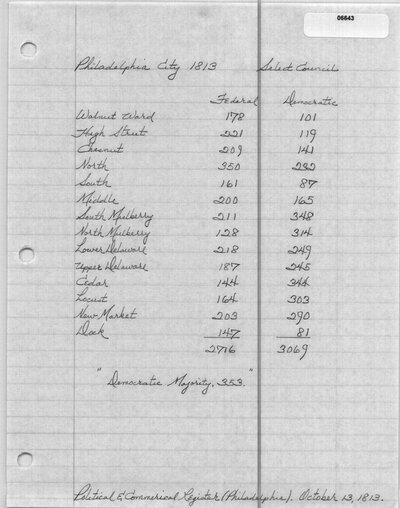 06643
Philadelphia City 1813 Select Council
Federal Democratic
Walnut Ward 178 101
High Street 221 119
Chesnut 209 141
North 350 282
South 161 87
Middle 200 165
South Mulberry 211 348
North Mulberry 128 314
Lower Delaware 218 249
Upper Delaware 187 245
Cedar 144 344
Locust 164 303
New Market 203 290
Dock 147 81
2716 3069
"Democratic Majority, 353."
Political & Commerical Register (Philadelphia). October 13, 1813.